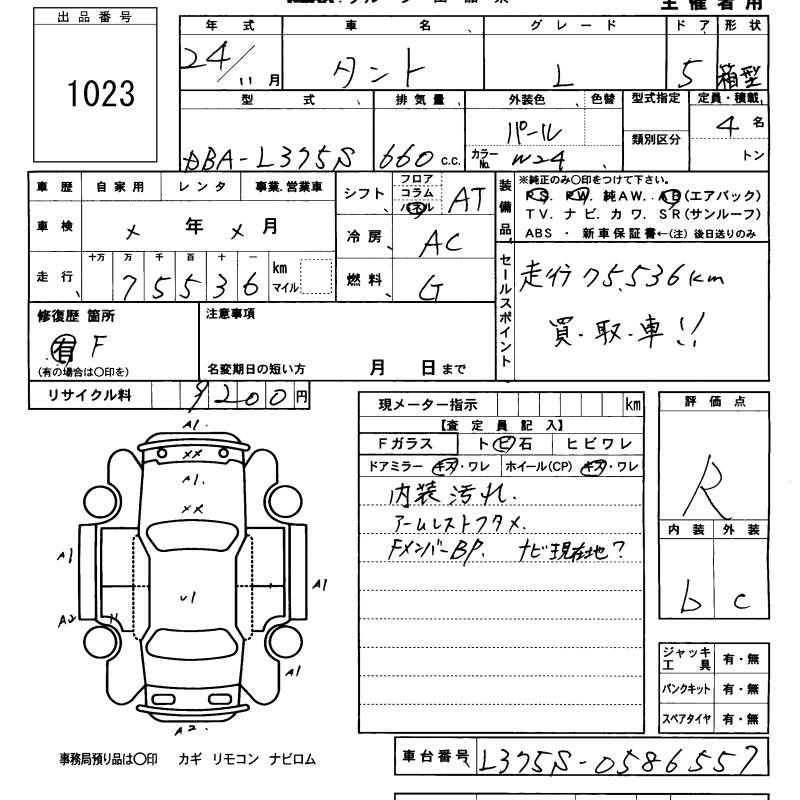 主催者用
出品番号
1023
年式 車名 グレード ドア 形状
24/11月 タント L 5 箱型
型式 排気量 外装色 色替 型式指定 定員・積載
パール 類別区分 4名
DBA-L375S 660c.c. カラーNo. W24 トン
車歴 自家用 レンタ 事業.営業車
車検 × 年 × 月
走行 十万 万 千 百 十 一
75536 km マイル
シフト フロア コラム パネル AT
冷房 AC
燃料 G
装備品
※純正のみ○印をつけて下さい。
PS. PW. 純AW. AB(エアバック)
TV. ナビ. カワ. SR(サンルーフ)
ABS ・ 新車保証書←(注)後日送りのみ
セールスポイント
走行75,536km
買.取.車!!
修復歴 箇所
有 F
(有の場合は○印を)
注意事項
名変期日の短い方 月 日まで
リサイクル料 9200円
現メーター指示 km
【査定員記入】
Fガラス ト ビ石 ヒビワレ
ドアミラー キズ・ワレ ホイール(CP) キズ・ワレ
内装汚れ.
アームレストフタメ.
FメンバーBP. ナビ現在地?
評価点
R
内装 外装
b c
A1
××
A1.
××
A1
U1
A1
A2
A1
A2
ジャッキ工具 有・無
パンクキット 有・無
スペアタイヤ 有・無
事務局預り品は○印 カギ リモコン ナビロム
車台番号 L375S-0586557